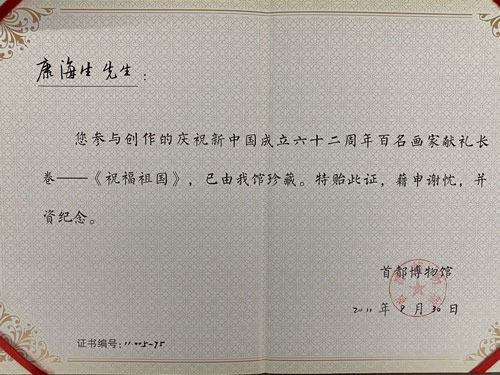 康海生先生：
您参与创作的庆祝新中国成立六十二周年百名画家献礼长
卷——《祝福祖国》，已由我馆珍藏。特贻此证，藉申谢忱，并
资纪念。
首都博物馆
2011年9月30日
证书编号：11.005-75